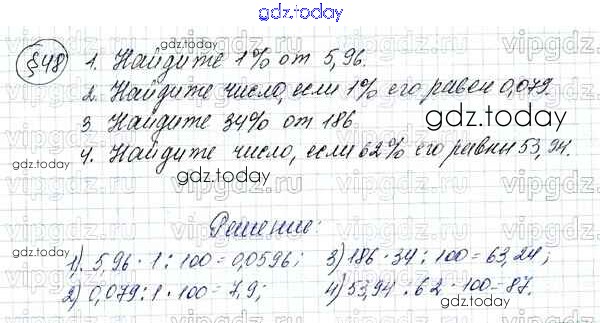 gdz.today
§48
1. Найдите 1% от 5,96.
2. Найдите число, если 1% его равен 0,079.
3 Найдите 34% от 186
4. Найдите число, если 62% его равны 53,94.
Решение:
1). 5,96 · 1 : 100 = 0,0596; 3) 186 · 34 : 100 = 63,24;
2) 0,079 : 1 · 100 = 7,9; 4) 53,94 : 62 · 100 = 87.
gdz.today
gdz.today
gdz.today
gdz.today
gdz.today
gdz.today
vipgdz.ru